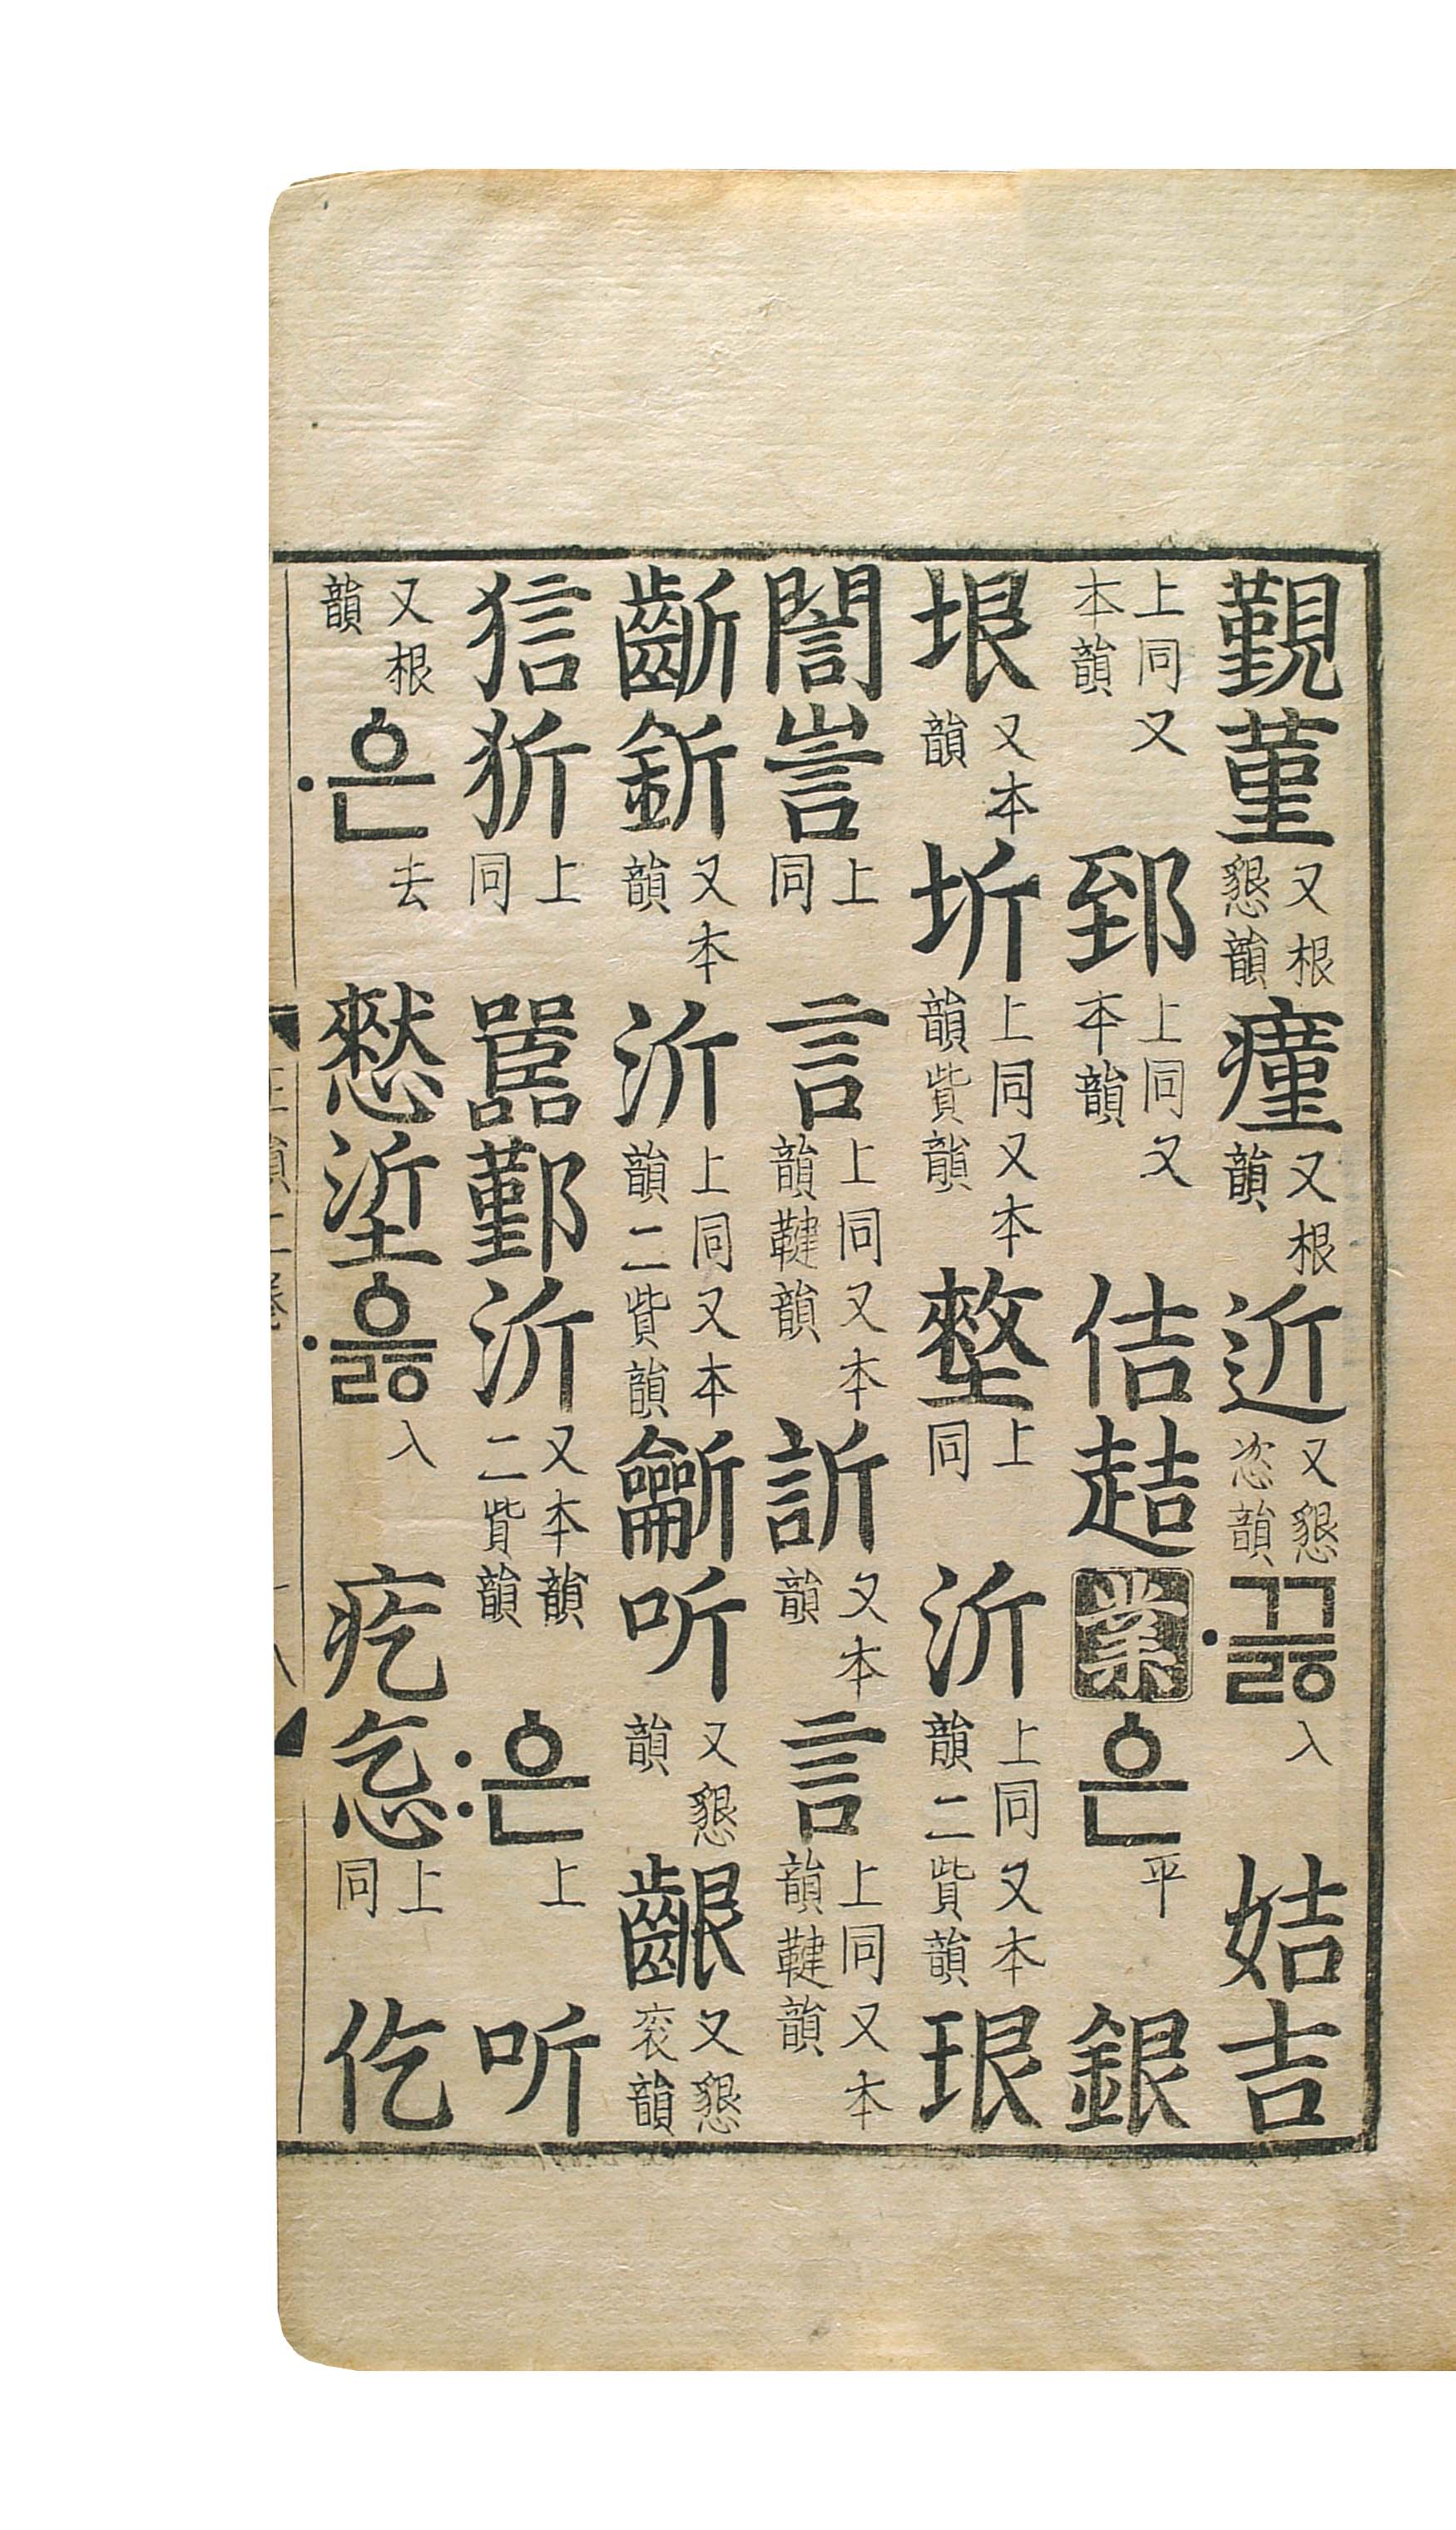 覲菫又根懇韻瘽又根韻近又懇恣韻〮끄ᇙ入姞吉
上同又本韻郅上同又本韻佶趌業ᅌᅳᆫ平銀
垠又本韻圻上同又本韻貲韻上同沂上同又本韻二貲韻珢
誾訔上同言上同又本韻鞬韻訢又本韻言上同又本韻鞬韻
齗釿又本韻沂上同又本韻二貲韻听又懇韻齦又懇袞韻
狺㹞上同嚚鄞沂又本韻二貲韻〯ᅌᅳᆫ上听
又根韻〮ᅌᅳᆫ去憖垽〮ᅌᅳᇙ入疙上同仡